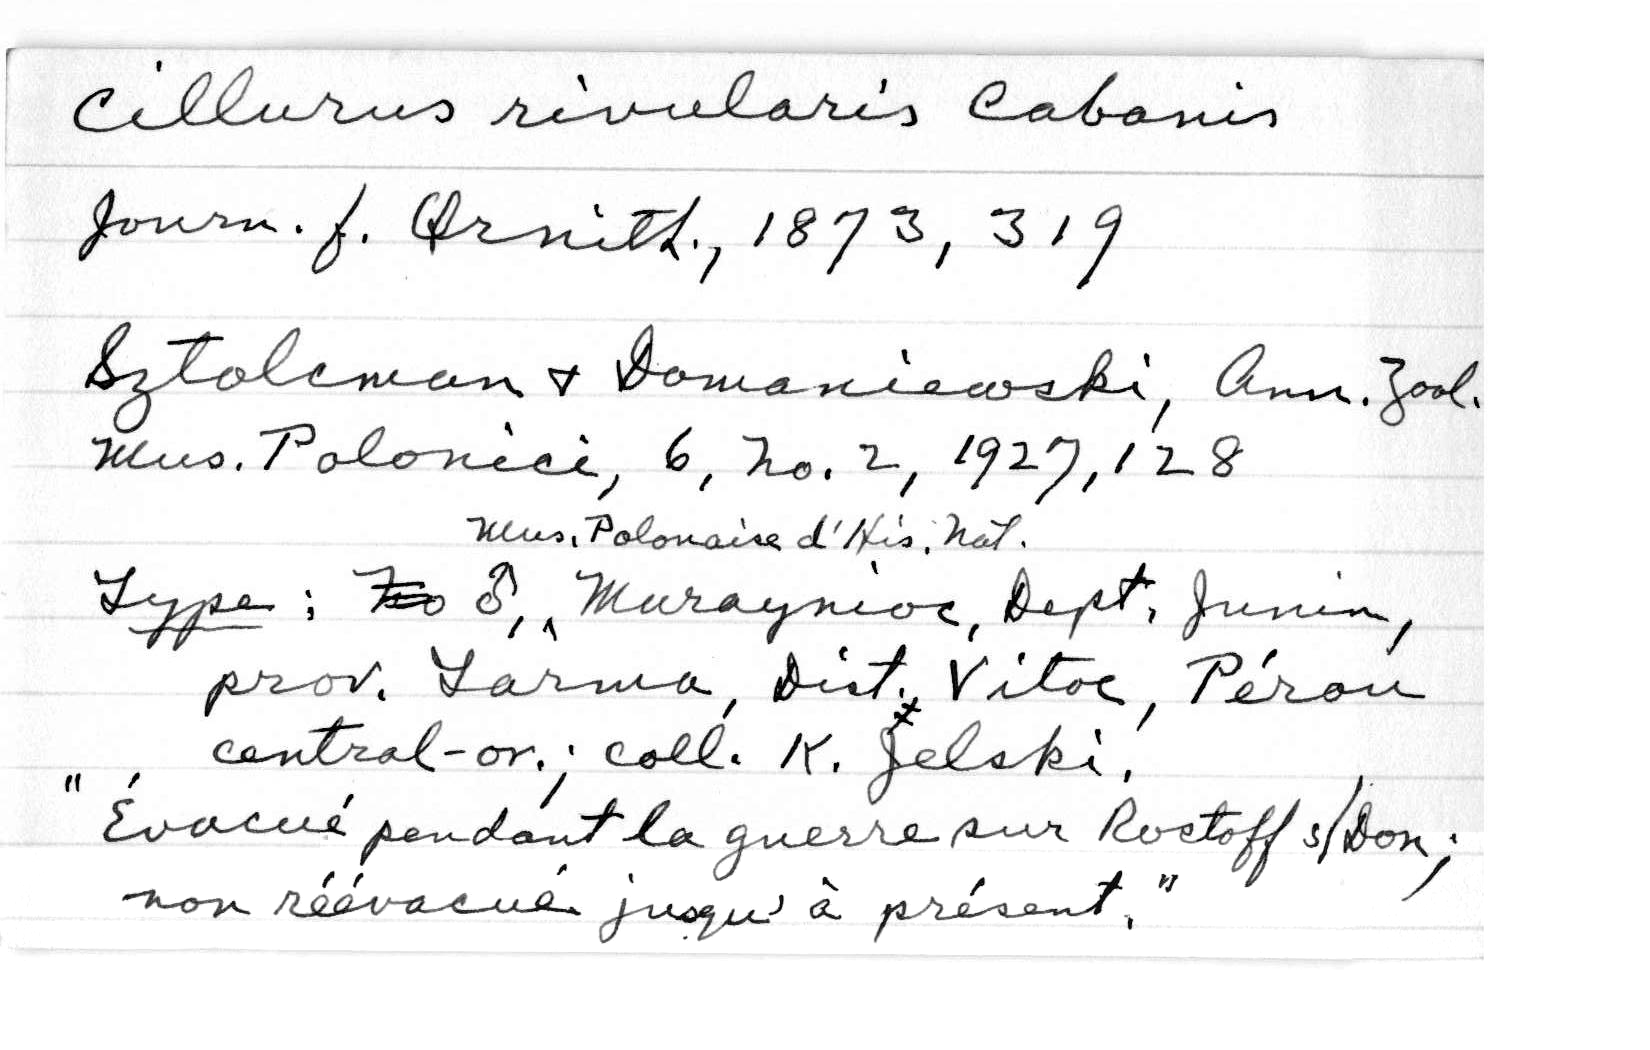 Cillurus rivularis Cabanis
Journ. f. Ornith., 1873, 319
Sztolcman & Domaniewski, Ann. Zool.
Mus. Polonici, 6, No. 2, 1927, 128
Mus. Polonaise d'His. Nat.
Type : ♂, ^ Muraynioc, Dept. Junin,
prov. Tarma, Dist. Vitoc, Pérou
central-or.; coll. K. Jelski.
"Évacué pendant la guerre sur Rostoff s/Don;
non réévacué jusqu'à présent."